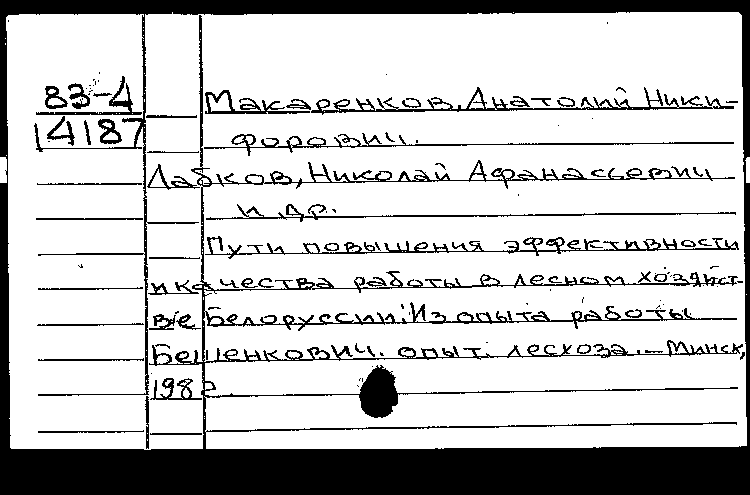 83-4
14187
Макаренков, Анатолий Ники-
форович.
Лабков, Николай Афанасьевич
и др.
Пути повышения эффективности
и качества работы в лесном хозяйст-
ве Белоруссии: Из опыта работы
Бешенкович. опыт. лесхоза. — Минск,
1982.